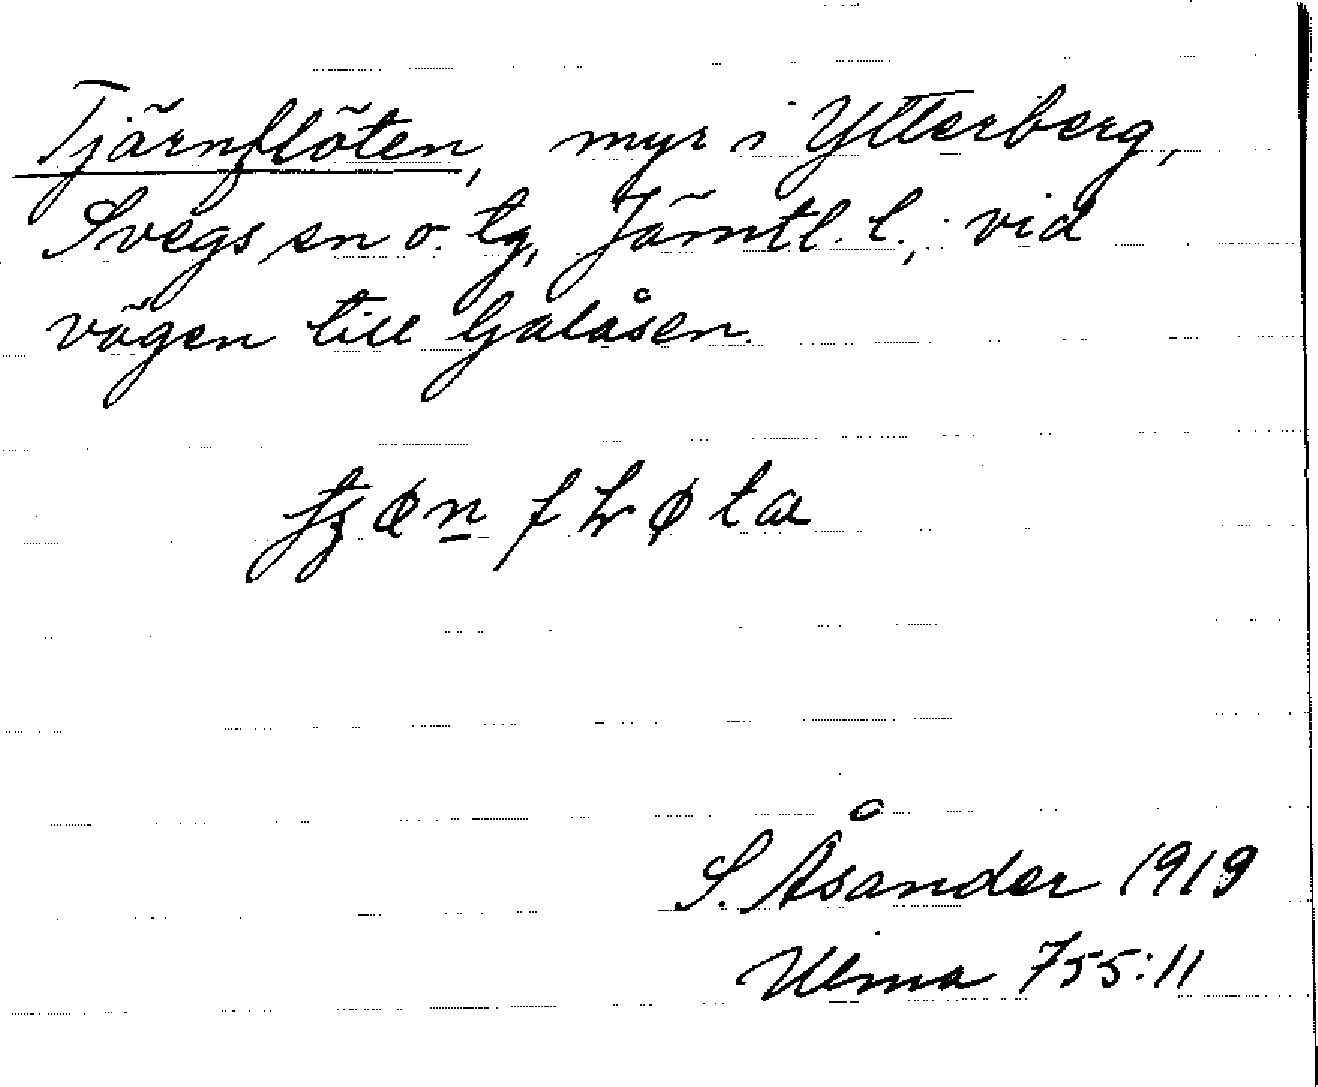 Tjärnflöten, myr i Ytterberg,
Svegs sn o. tg, Jämtl. l., vid
vägen till Galåsen.
S. Åsander 1919
Ulma 755:11